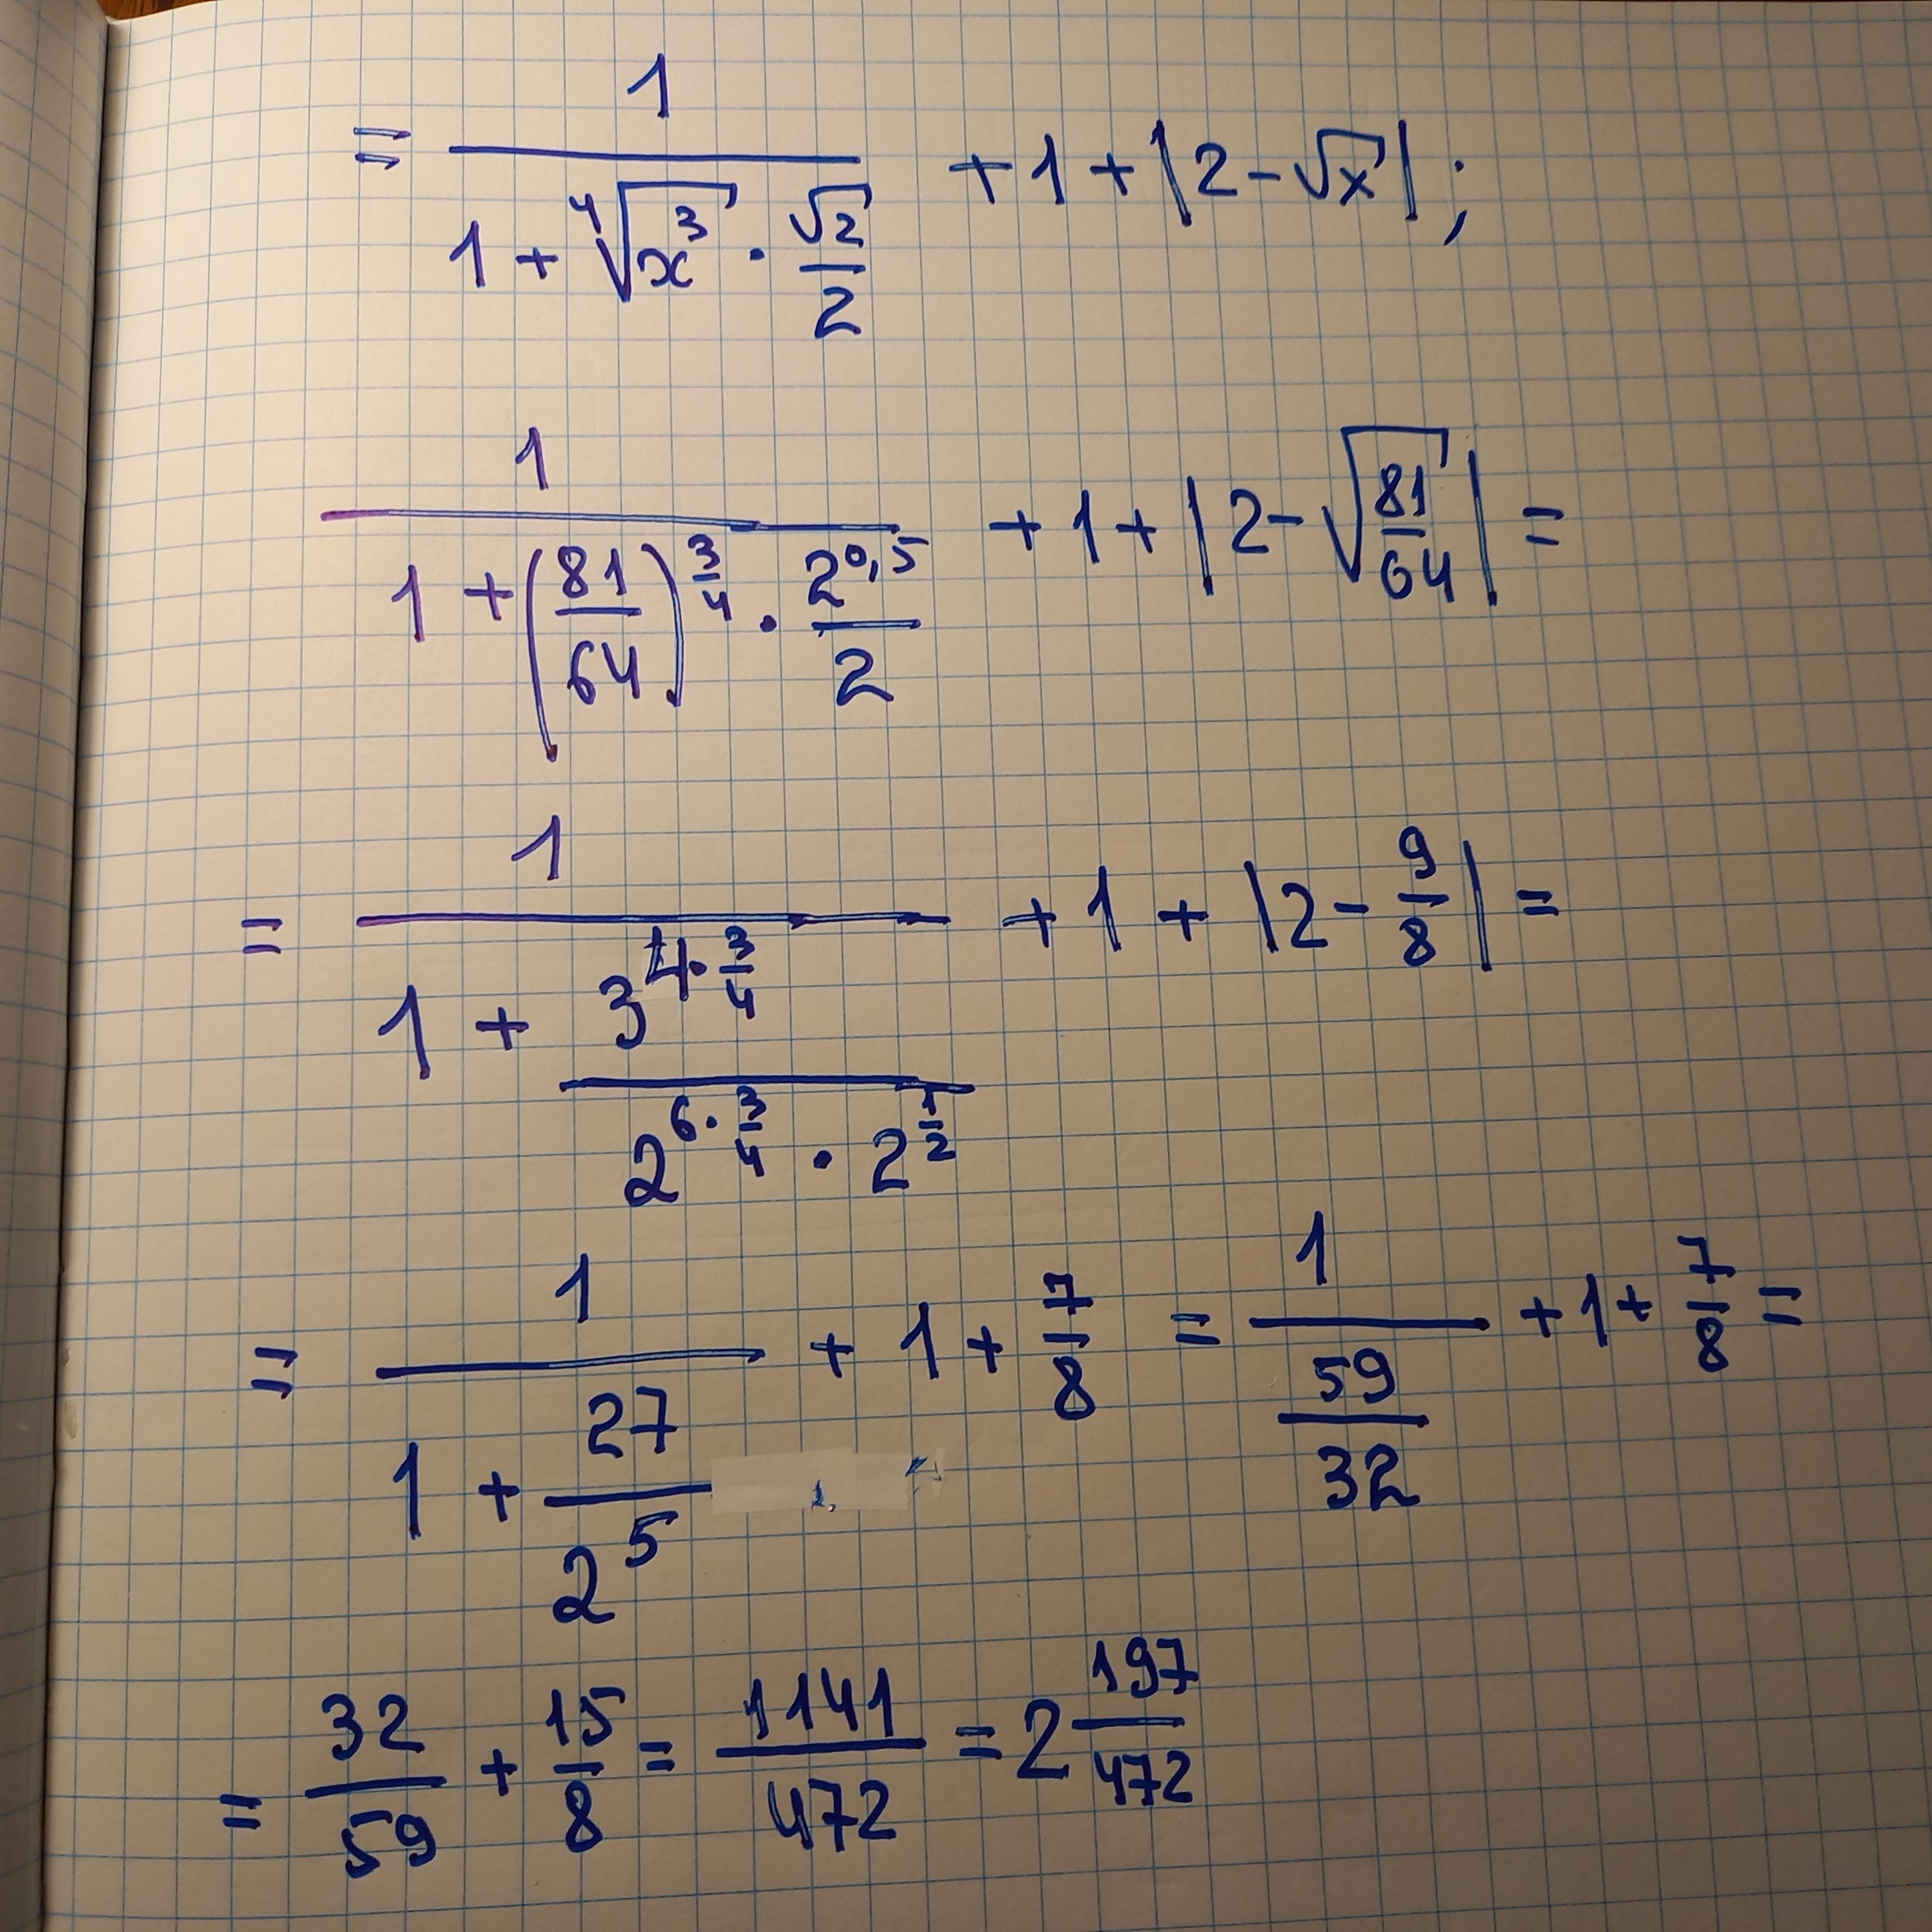 = 1 / (1 + ⁴√x³ · √2/2) + 1 + |2 - √x| ;
1 / (1 + (81/64)^(3/4) · 2^0,5/2) + 1 + |2 - √(81/64)| =
= 1 / (1 + 3^(4·3/4) / (2^(6·3/4) · 2^(1/2))) + 1 + |2 - 9/8| =
= 1 / (1 + 27/2^5) + 1 + 7/8 = 1 / (59/32) + 1 + 7/8 =
= 32/59 + 15/8 = 1141/472 = 2 197/472